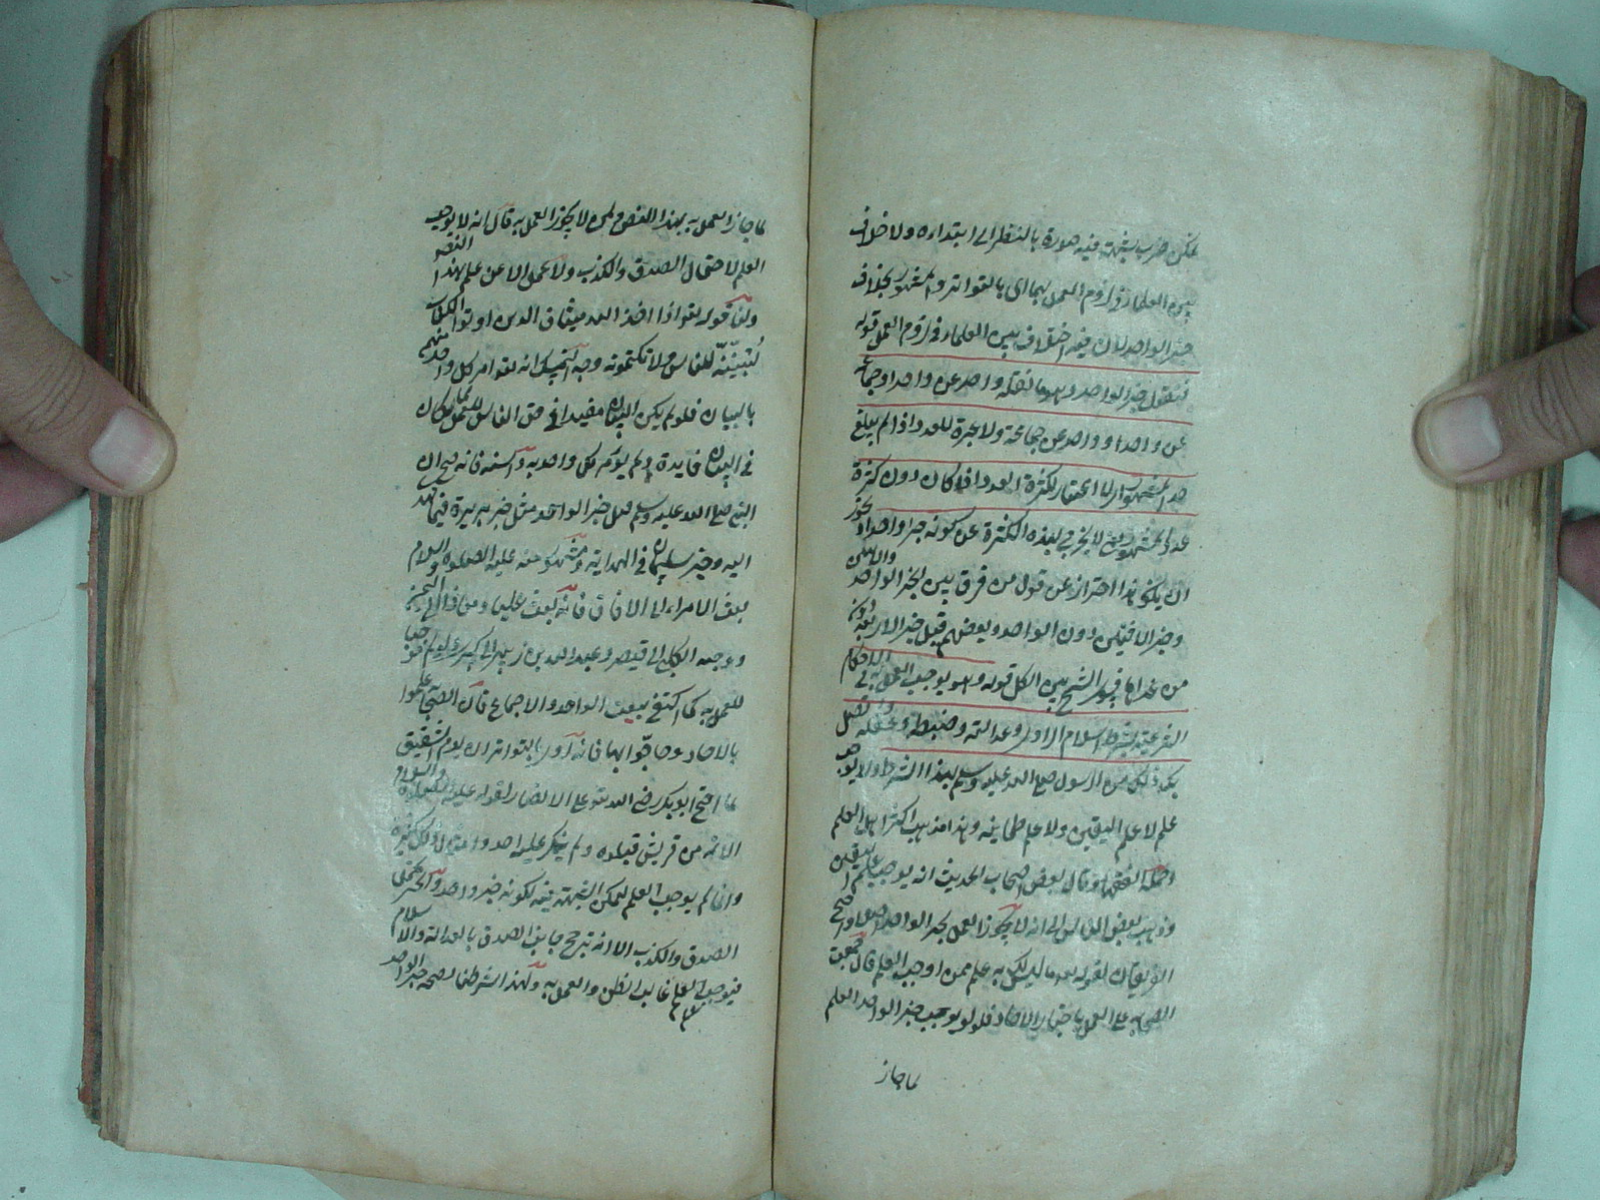 تمكن ضرب شبهة فيه صورة بالنظر الى ابتداءه ولا خلاف
بين العلماء في لزوم العمل بهما اى بالتواتر والمشهور بخلاف
خبر الواحد لان فيه اختلاف بين العلماء في لزوم العمل قوله
فنقول خبر الواحد وهو ما نقله واحد عن واحد او جماعة
عن واحد او واحد عن جماعة ولا عبرة للعدد اذا لم يبلغ
حد المشهور لا اعتبار لكثرة العدد اذا كان دون كثرة
عدد المشهور لا يخرج بهذه الكثرة عن كونه خبر واحد او يجوز
ان يكون هذا احتراز عن قول من فرق بين الخبر الواحد
وخبر الاثنين دون الواحد وبعضهم قبل خبر الاربعة دون
من عداها فسوى الشيخ بين الكل قوله وهو يوجب العمل به في الاحكام
الشرعية بشرط اسلام الراوى وعدالته وضبطه وعقله
ذلك من الرسول صلى الله عليه وسلم بهذا الشرط ولا يوجب
علم لا علم اليقين ولا علم طمانينة وهذا مذهب اكثر اهل العلم
وجملة الفقهاء وقال بعض اصحاب الحديث انه يوجب علم اليقين
وذهب بعض الناس الى انه لا يجوز العمل بخبر الواحد اصلا واحتج
الفريقان لقوله تعالى ما ليس لك به علم ممن اوجب العلم قال اجمعت
الصحابة على العمل باخبار الآحاد فلو لم يوجب خبر الواحد العلم
لما جاز
لما جاز العمل به بهذا النص ومن لا يجوز العمل به قال انه لا يوجب
العلم لاحتمال الصدق والكذب ولا عمل الا عن علم بهذا النص
ولنا قوله تعالى واذا اخذ الله ميثاق الذين اوتوا الكتاب
لتبيننه للناس ولا تكتمونه وجه التمسك انه تعالى امر كل واحد منهم
بالبيان فلو لم يكن البيان مفيدا في حق الناس للعمل لما كان
في البيان فايدة ولم يؤمر كل واحد به والسنة فانه صح ان
النبي صلى الله عليه وسلم قبل خبر الواحد مثل خبر بريرة فيما اهدى
اليه وخبر سلمان في الهداية ومشهور عنه عليه الصلوة والسلام
بعث الامراء الى الافاق فانه بعث عليا ومعاذا الى اليمن
ودحيه الكلبي الى قيصر
للعمل به لما اكتفى ببعث الواحد والاجماع فان الصحابة عملوا
بالاحاد وحاجوا بها فانه روى بالتواتر ان يوم السقيفة
لما احتج ابو بكر رضي الله تعالى على الانصار لقوله عليه الصلوة والسلام
الائمة من قريش قبلوه ولم ينكر عليه احد
وانما لم يوجب العلم لتمكن الشبهة فيه لكونه خبر واحد والخبر يحتمل
الصدق والكذب الا انه ترجح جانب الصدق بالعدالة والاسلام
فيوجب العلم غالب الظن والعمل به ولهذا اشترطنا لصحة خبر الواحد